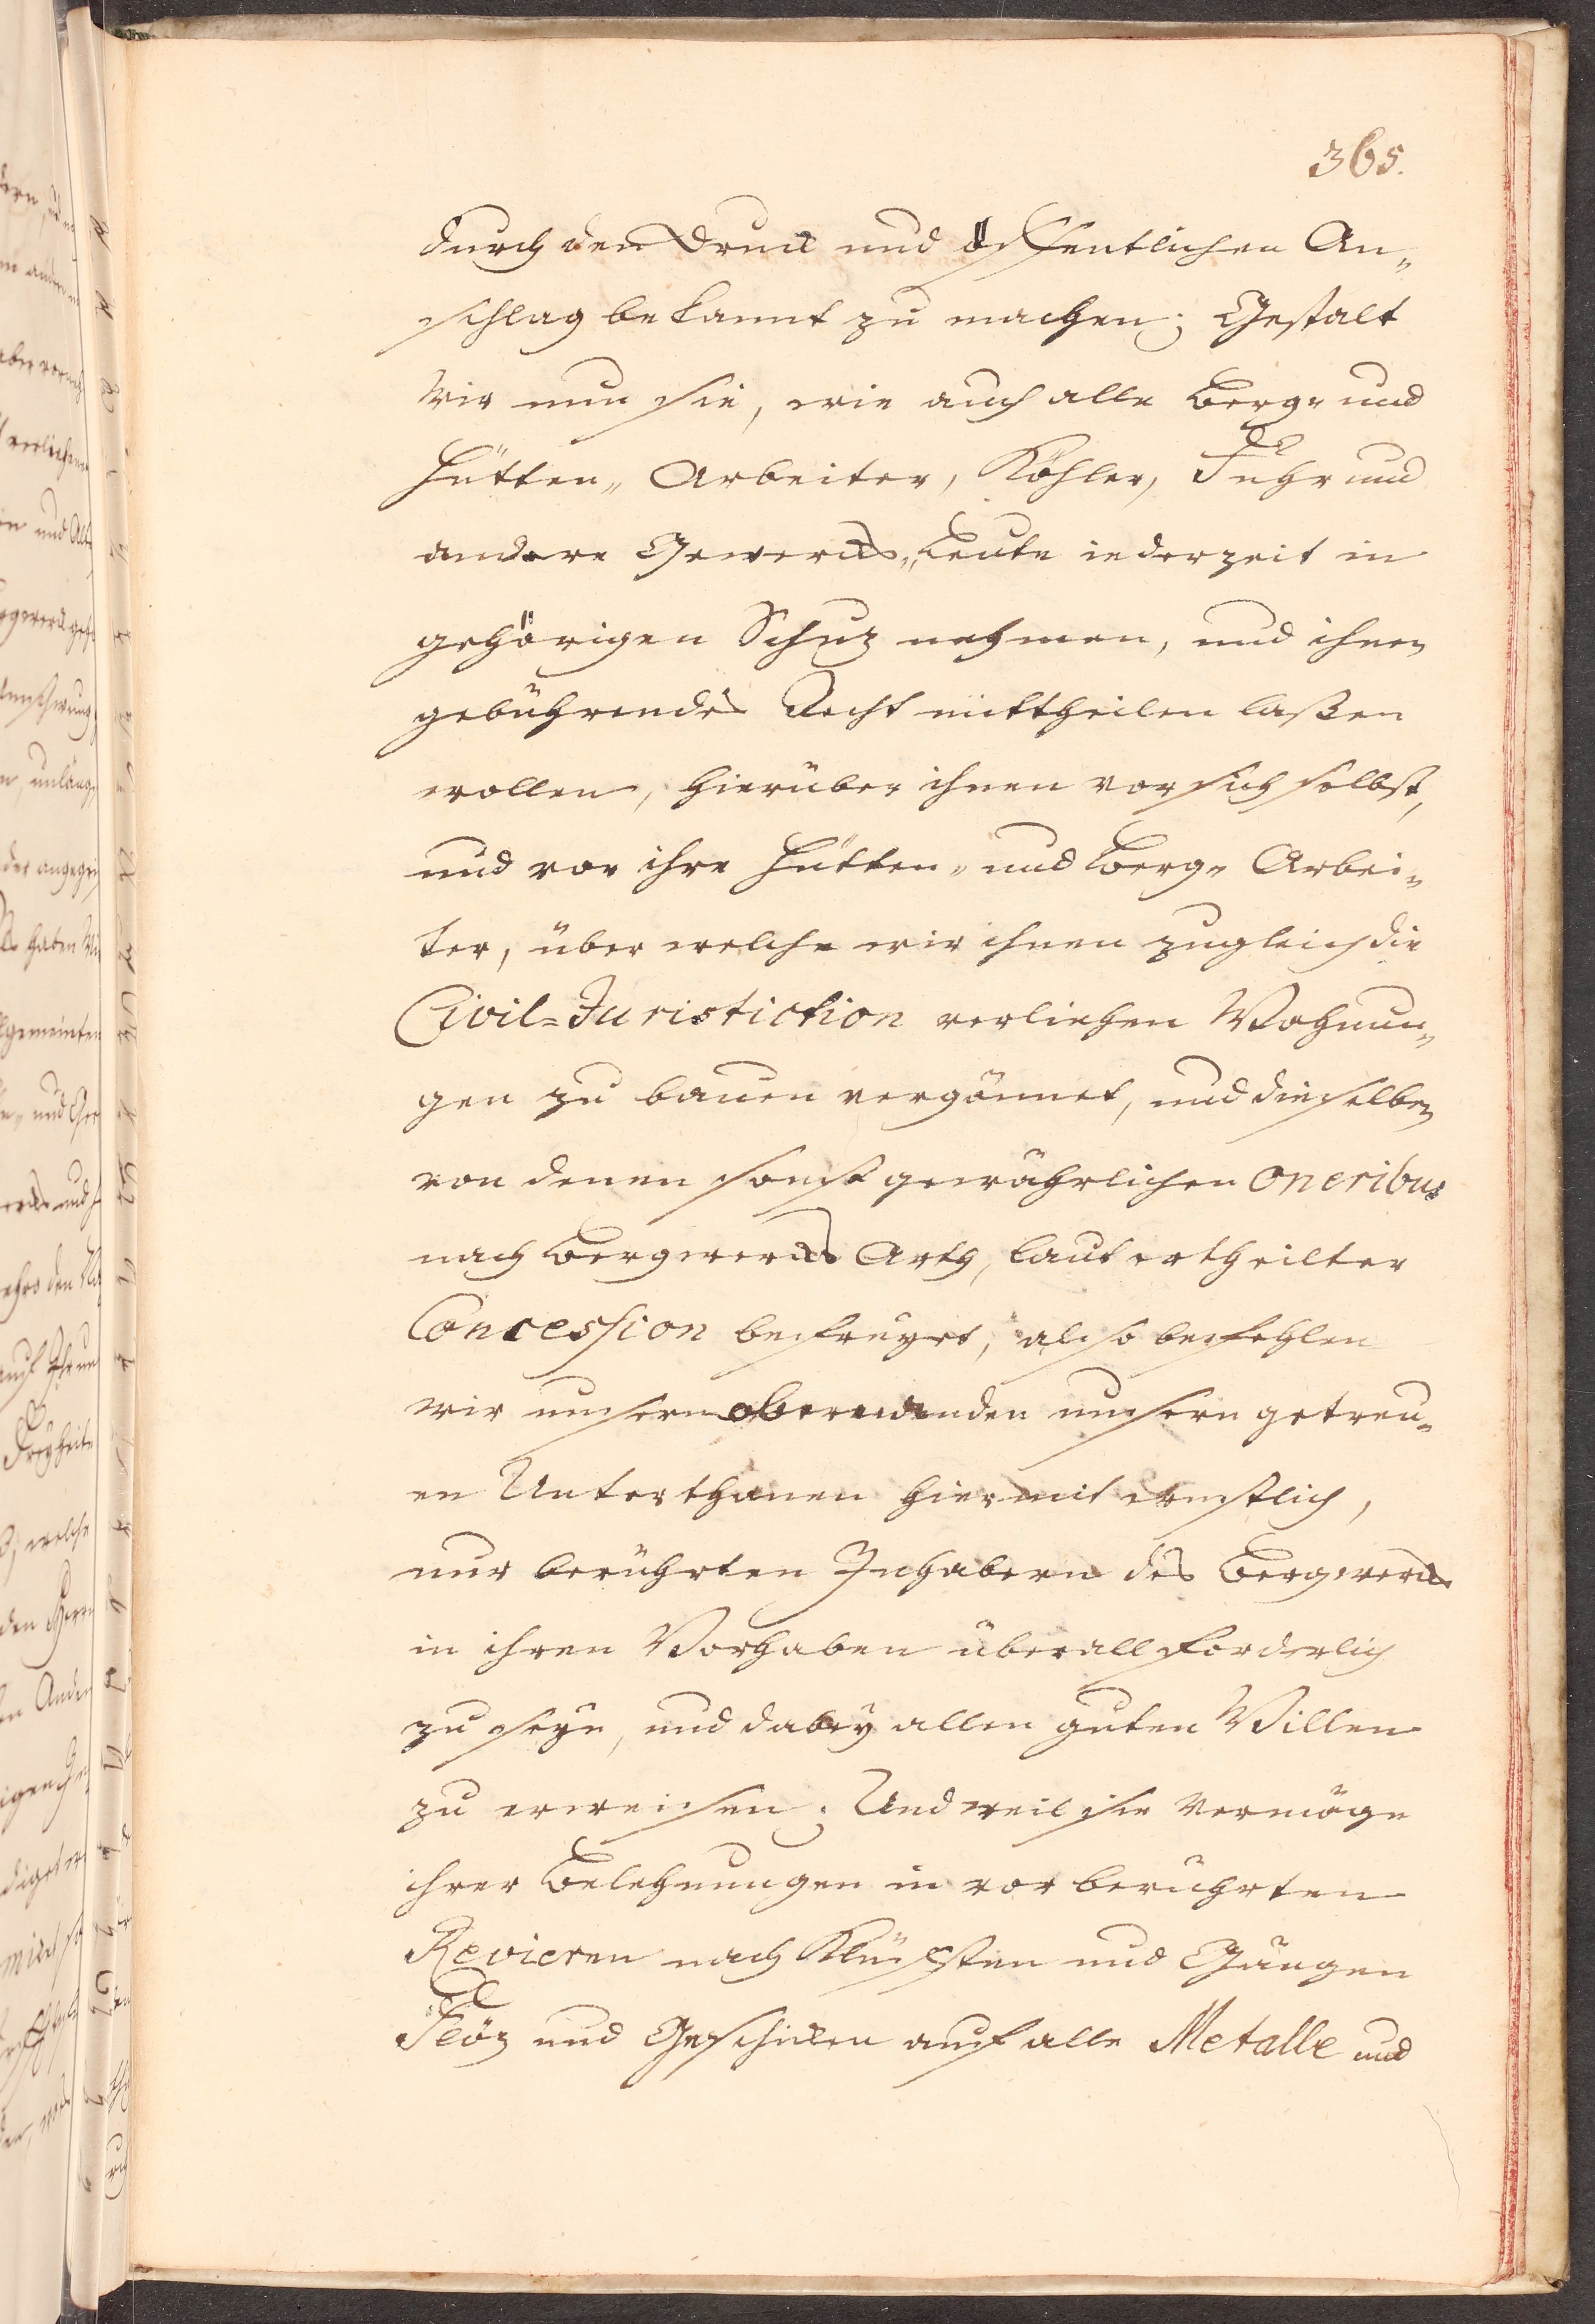 365.
durch den Druck und öffentlichen An„
schlag bekannt zu machen; Gestalt
Wir nun sie, wie auch alle Berg„ und
Hütten„ Arbeiter, Köhler, Fuhr und
andere Gewercks„ Leute iederzeit in
gehörigen Schuz nehmen, und ihnen
gebührendes Recht mittheilen laßen
wollen, hierüber ihnen vor sich selbst,
und vor ihre Hütten„ und Berg„ Arbei„
ter, über welche wir ihnen zugleich die
Civil=Juristiction verliehen Wohnun„
gen zu bauen vergönnet, und dieselben
von denen sonst gewöhrlichen oneribus
nach Bergwercks Arth, laut ertheilter
Concession befreyet, also befehlen
wir unsern obern und denen unsern getreu„
en Unterthanen hiermit ernstlich,
nur berührten Inhabern des Bergwercks
in ihren Vorhaben überall forderlich
zu seyn, und dabey allen guten Willen
zu erweisen; Und weil sie vermöge
ihrer Belehnungen in vor berührten
Revieren nach Klüfften und Gängen
Flöz und Geschicken auf alle Metalle und